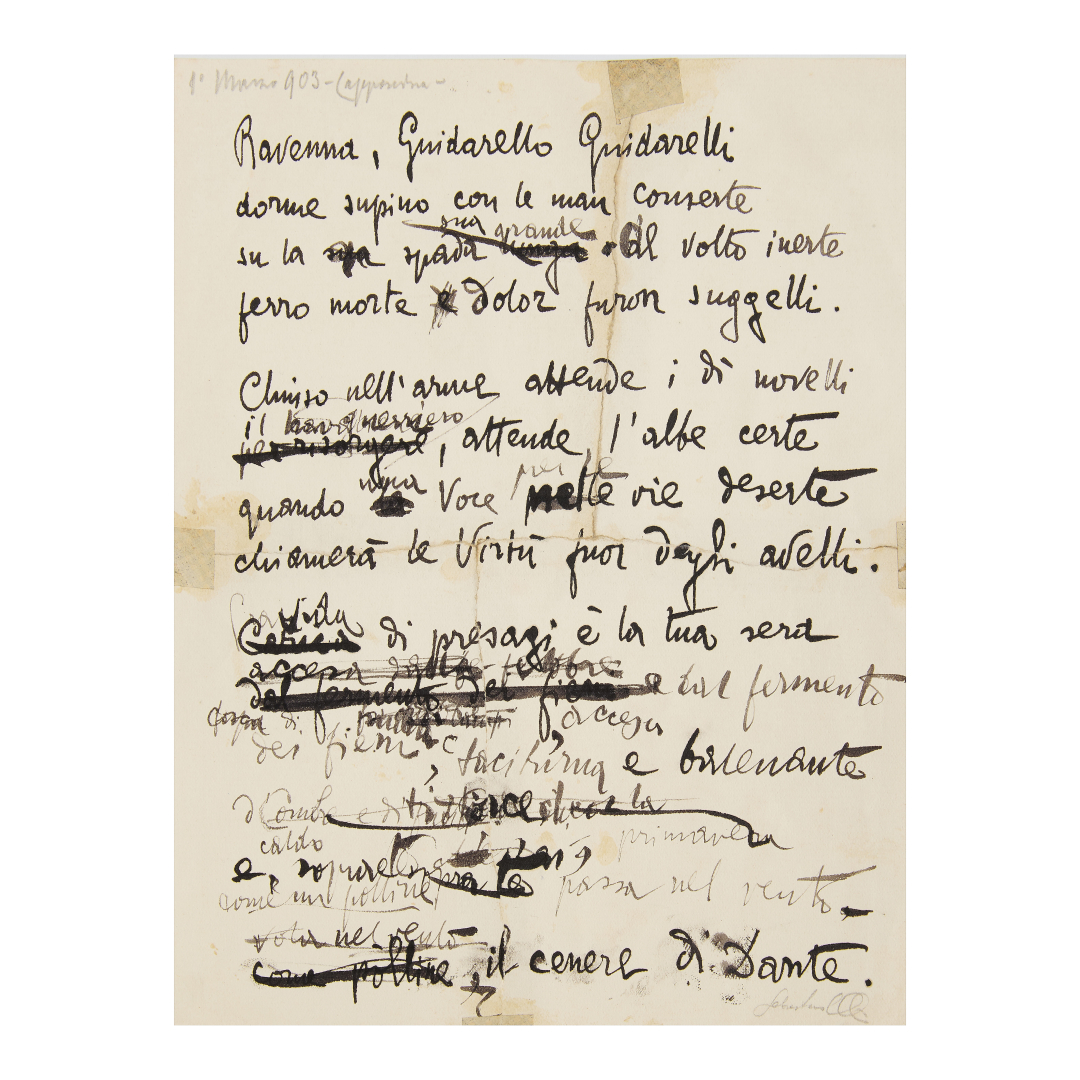 1° Marzo 903 - Capponcina -
Ravenna, Guidarello Guidarelli
dorme supino con le man conserte
sua grande
su la sua spada lunga. Al volto inerte
ferro morte e dolor furon suggelli.
Chiuso nell'arme attende i dì novelli
il guerriero
per risorgere, attende l'albe certe
una per le
quando la Voce nelle vie deserte
chiamerà le Virtù fuor degli avelli.
Gravida
di presagi è la tua sera
accesa febbre
dal fermento dei fieni e dal fermento
accesa
dei fieni, taciturna e balenante
d'ombra e di
primavera
caldo
e, sopra
passa nel vento
come un polline
vola nel vento
come polline il cenere di Dante.